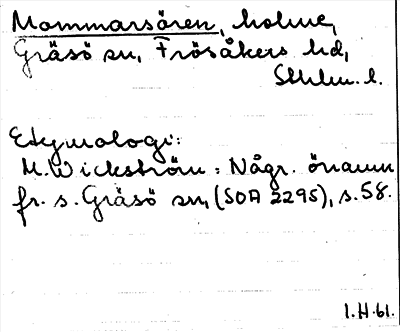 Mommarsören, holme,
Gräsö sn, Frösåkers hd,
Sthlm. l.
Etymologi:
M. Wickström: Någr. önamn
fr. s. Gräsö sn, (SOA 2295), s. 58.
I.H.61.